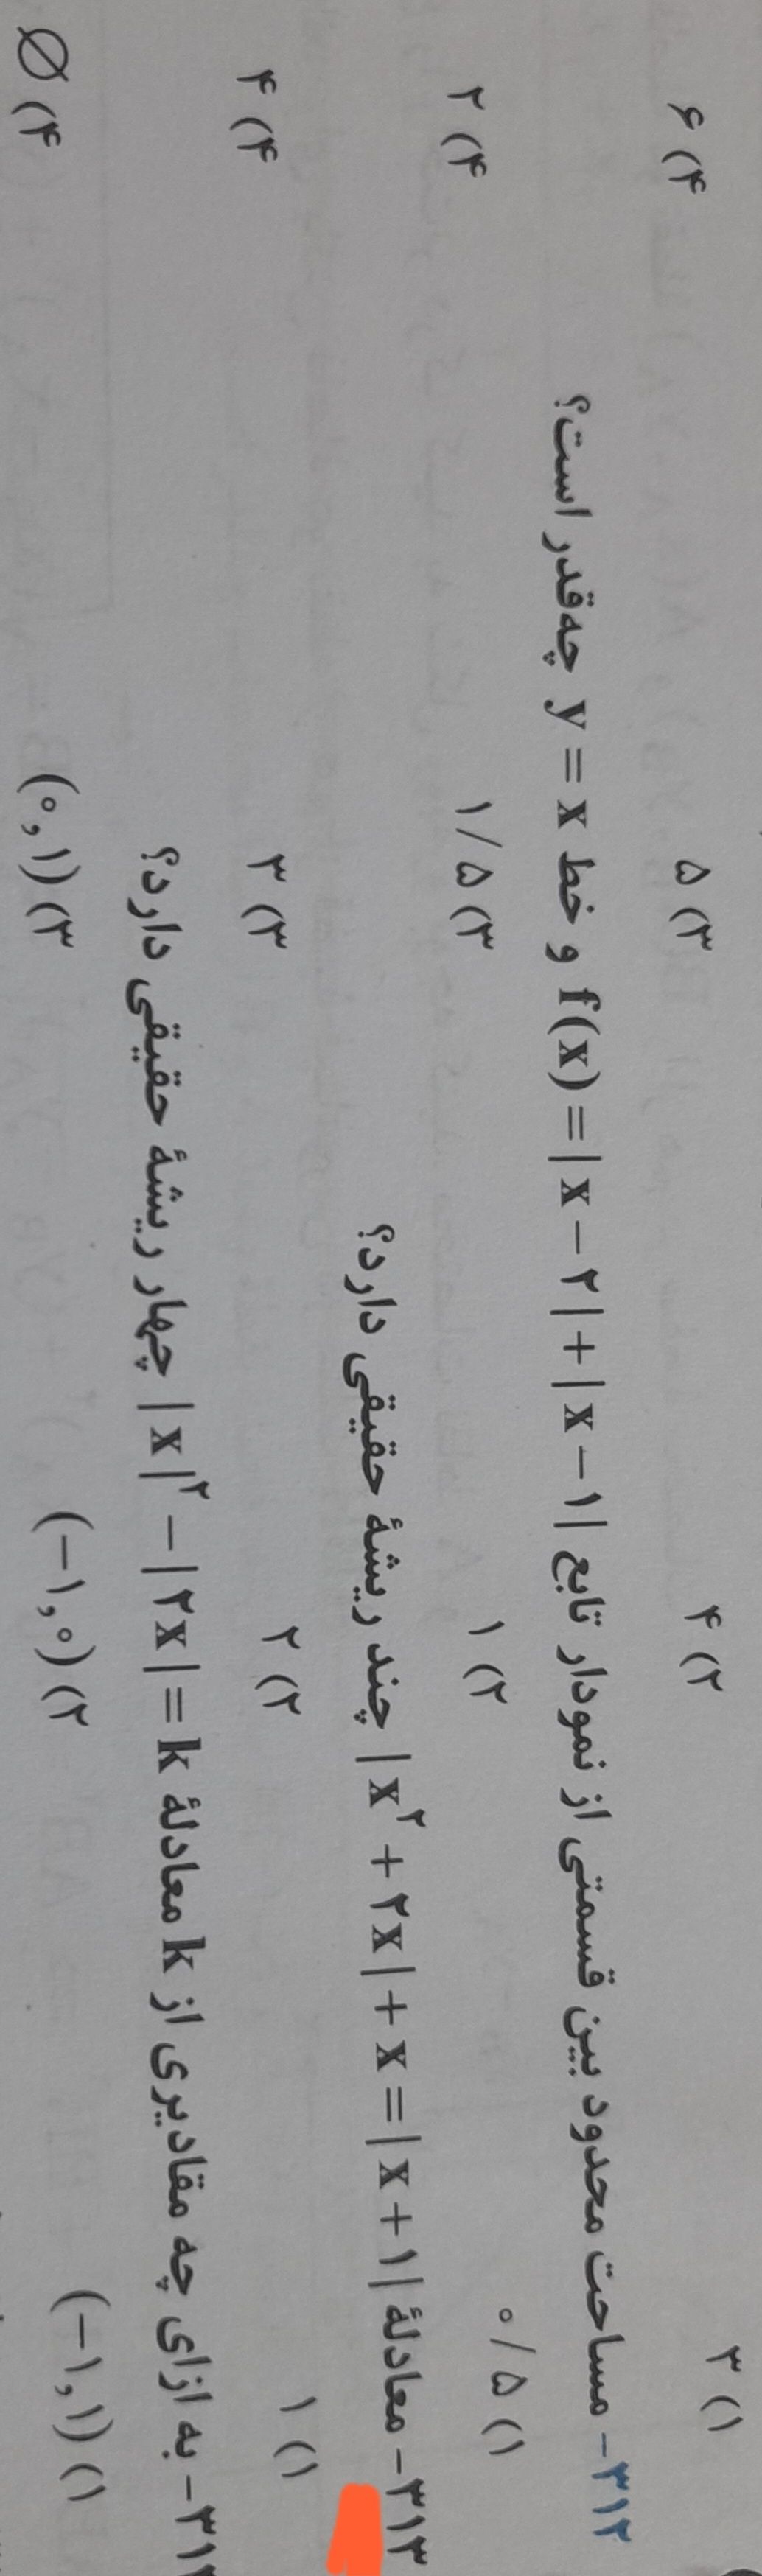 ۱) ۳ ۲) ۴ ۳) ۵ ۴) ۶
۳۱۲- مساحت محدود بین قسمتی از نمودار تابع f(x)=|x-۲|+|x-۱| و خط y=x چه‌قدر است؟
۱) ۰/۵ ۲) ۱ ۳) ۱/۵ ۴) ۲
۳۱۳- معادلهٔ |x²+۲x|+x=|x+۱| چند ریشهٔ حقیقی دارد؟
۱) ۱ ۲) ۲ ۳) ۳ ۴) ۴
به ازای چه مقادیری از k معادلهٔ |x|²-|۲x|=k چهار ریشهٔ حقیقی دارد؟
۱) (-۱,۱) ۲) (-۱,۰) ۳) (۰,۱) ۴) ∅